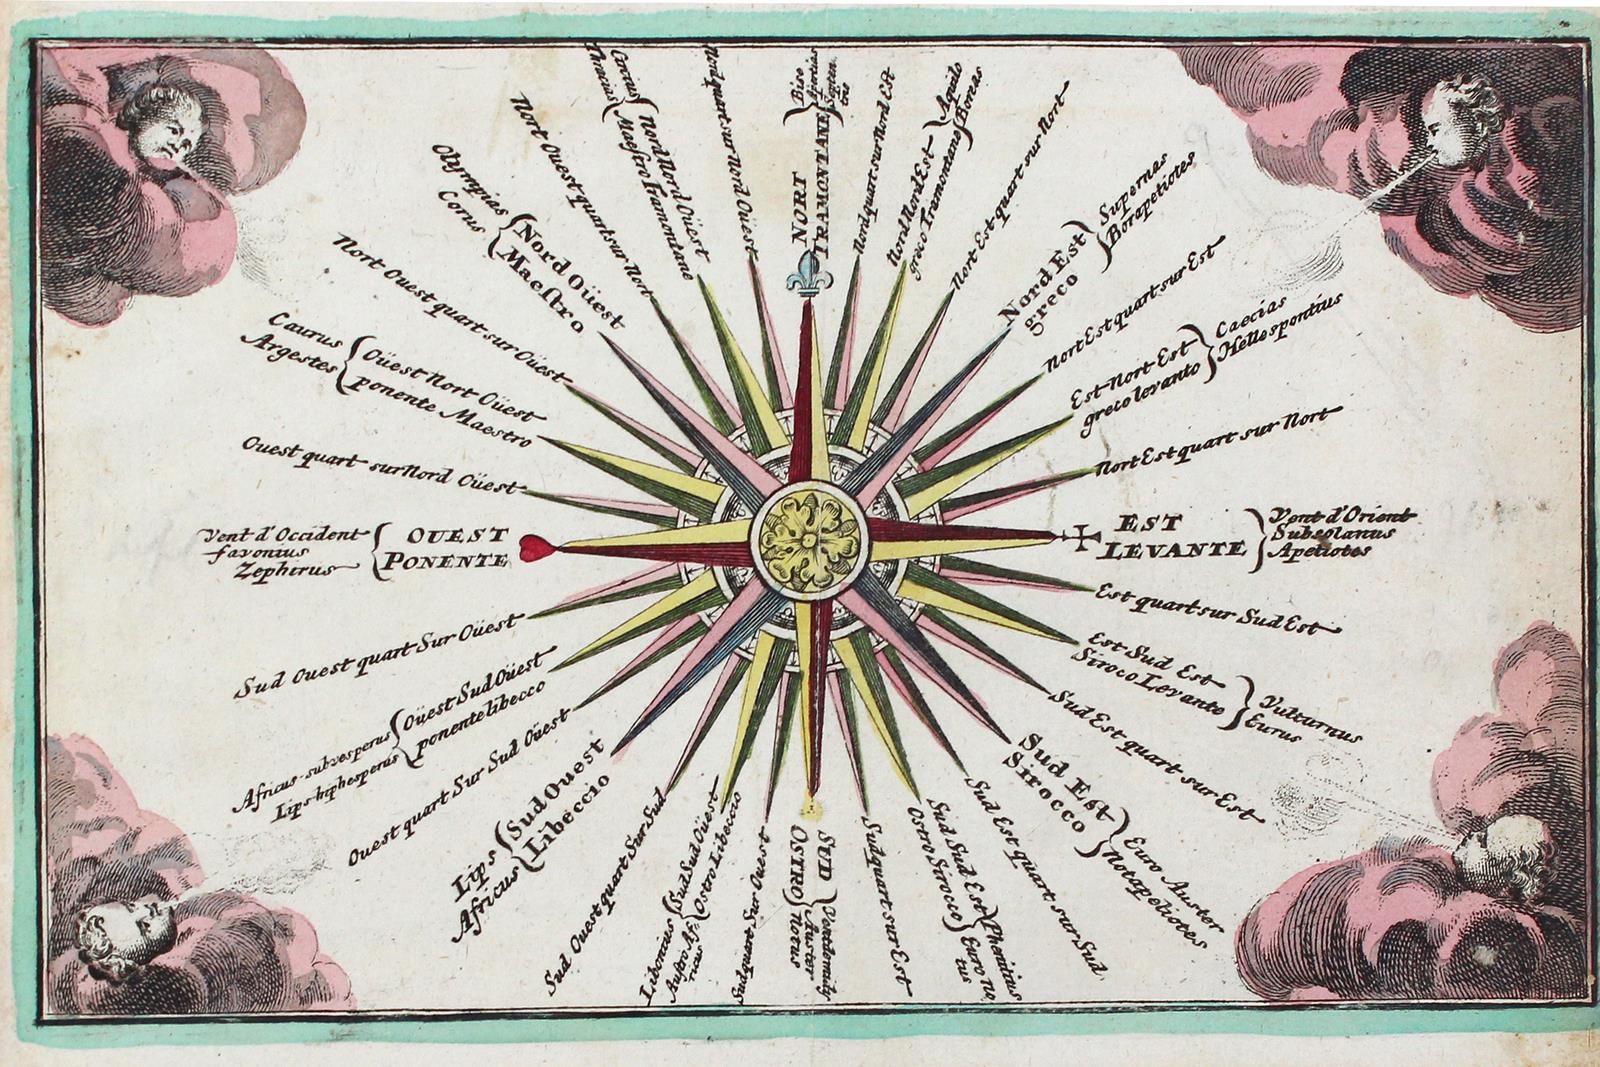 Bise
Aparctias
Septen-
trio
NORT
TRAMONTANE
Nord quart sur Nord Est
Aquilo
Boreas
Nord Nord Est
greco Tramontane
Nort Est quart sur Nort
Supernas
Borapeliotes
Nord Est
greco
Nort Est quart sur Est
Caecias
Hellespontius
Est Nort Est
greco levanto
Nort Est quart sur Nort
EST
LEVANTE
Vent d'Orient
Subsolanus
Apeliotes
Est quart sur Sud Est
Est Sud Est
Siroco Levante
Vulturnus
Eurus
Sud Est quart sur Est
Sud Est
Sirocco
Euro Auster
Notapeliotes
Sud Est quart sur Sud
Sud Sud Est
Ostro Sirocco
Phoenitius
Euro no
tus
Sud quart sur Est
SUD
OSTRO
Vent de midy
Auster
Notus
Sud quart Sur Ouest
Sud Sud Oüest
Ostro Libeccio
Libonius
Austro Af-
ricus
Sud Ouest quart Sur Sud
Sud Ouest
Libeccio
Lips
Africus
Ouest quart Sur Sud Oüest
Oüest Sud Oüest
ponente libecco
Africus-subvesperus
Lips-hiphesperus
Sud Ouest quart Sur Oüest
OUEST
PONENTE
Vent d'Occident
favonius
Zephirus
Ouest quart sur Nord Oüest
Oüest Nort Oüest
ponente Maestro
Caurus
Argestes
Nort Ouest quart sur Oüest
Nord Oüest
Maestro
Olympias
Corus
Nort Ouest quart sur Nort
Nord Nord Oüest
Maestro Tramontane
Circius
Thracius
Nord quart sur Nord Oüest